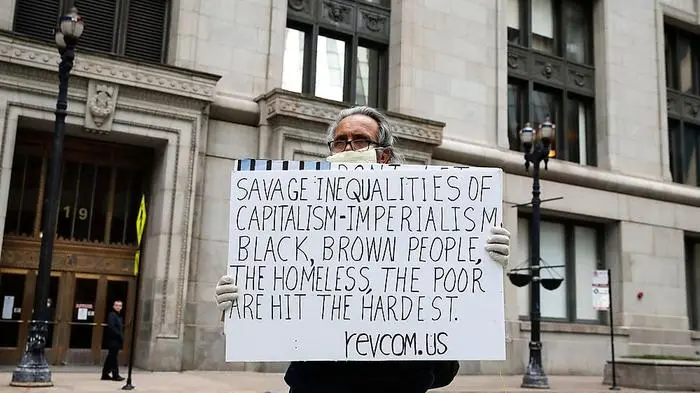 19
DON'T LET
SAVAGE INEQUALITIES OF
CAPITALISM-IMPERIALISM
BLACK, BROWN PEOPLE,
THE HOMELESS, THE POOR
ARE HIT THE, HARDEST.
revcom.us